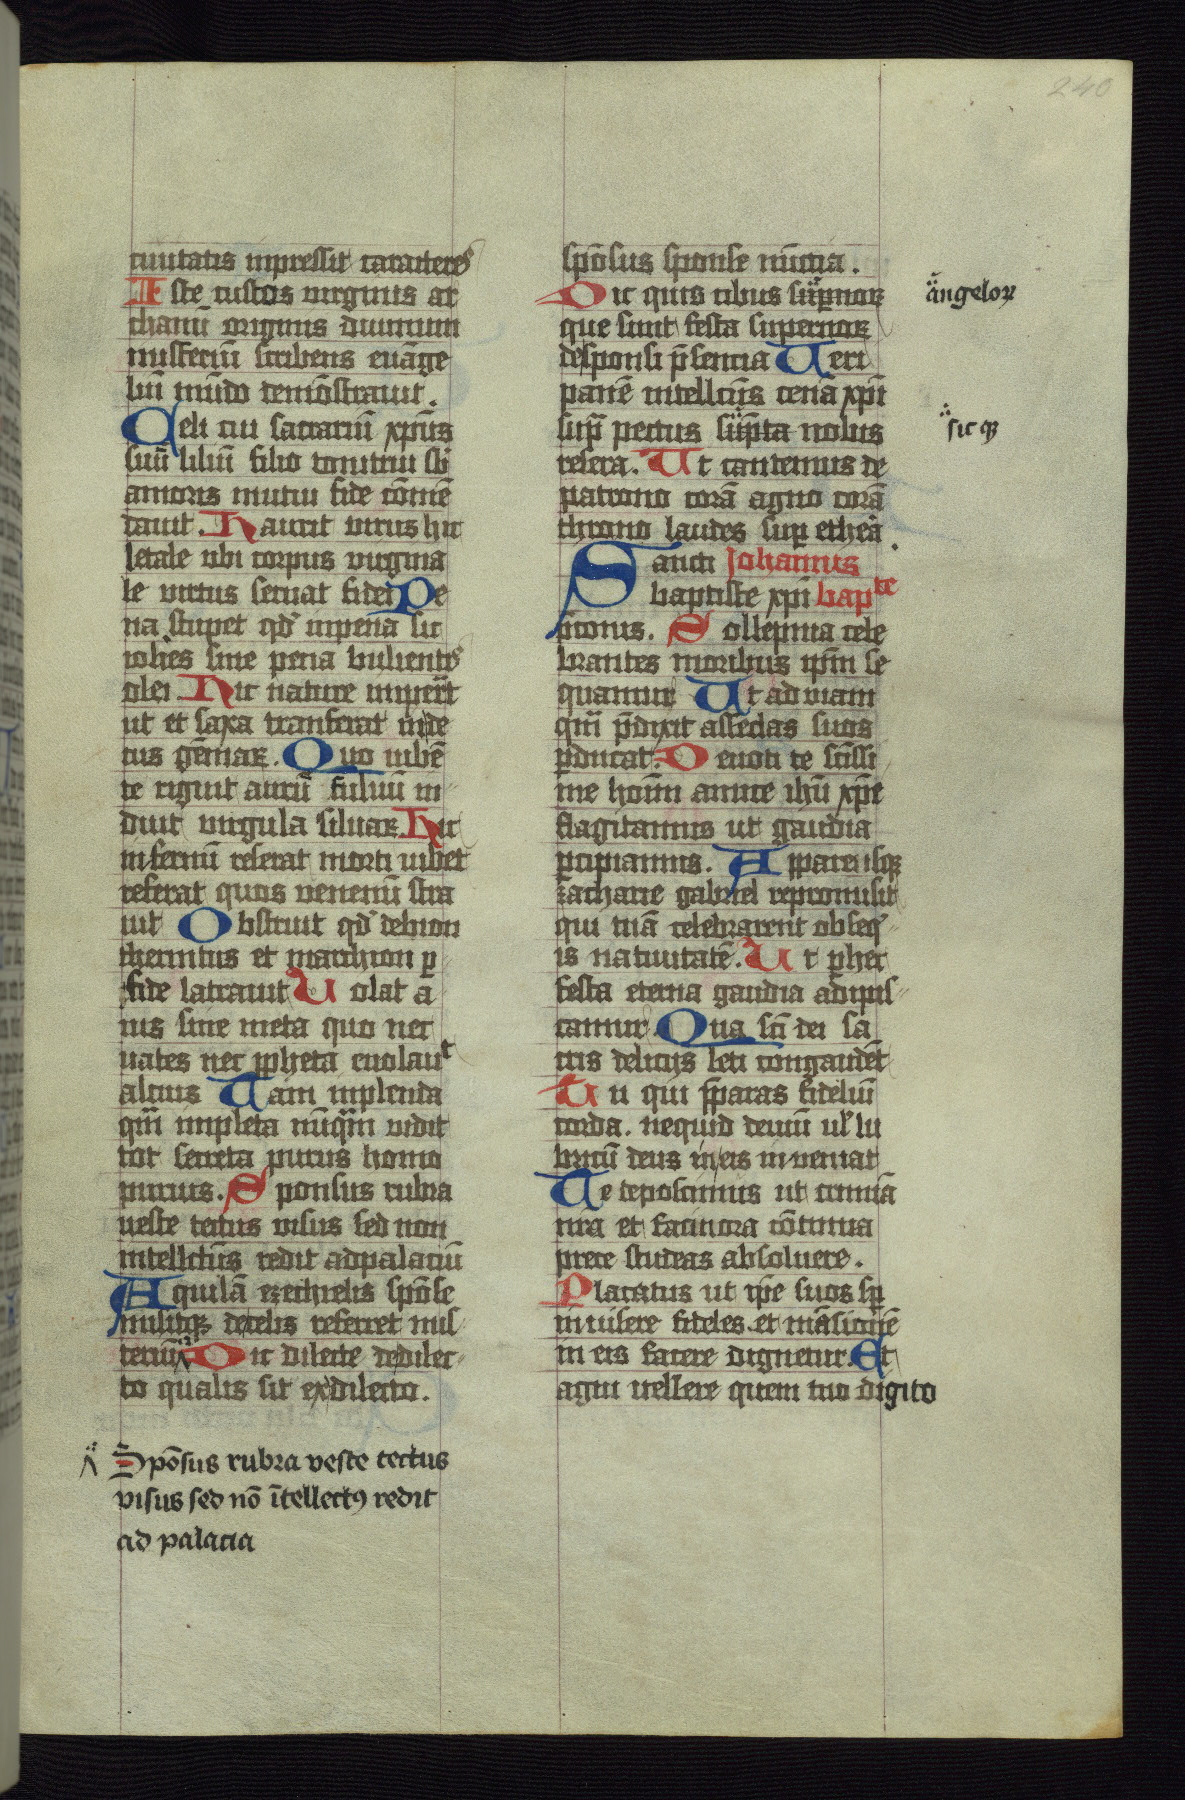 240
ciuitatis inpressit caracteres
Iste custos uirginis ar
chanū originis diuinum
misteriū scribens euāge
liū mūdo demōstrauit.
Celi cui sacrariū xp̄us
suū liliū filio tonitrui sb
amoris mutui fide cōmē
dauit. Haurit uirus hic
letale ubi corpus uirgina
le uirtus seruat fidei Pe
na stupet qd̛ inpena sit
ioh̄es sine pena bulientis
olei Hic nature inperat
ut et saxa tranferat in de
cus gēmaꝝ. Quo iubē
te riguit aurū fuluū in
duit uirgula siluaꝝ. Hic
infernū reserat morti iubet
referat quos uenenū stra
uit Obstruit qd̛ hebion
cherintus et marchion ꝑ
fide latrauit Uolat a
uis sine meta quo nec
uates nec ꝓpheta euolauᵗ
altius Tam inplenda
qm̄ impleta nūqm̄ uidit
tot secreta purus homo
purius. Sponsus rubra
ueste tectus uisus sed non
intellectus redit ad palaciū
Aquilā ezechielis spōse
misitqꝫ de celis referret mis
teriū Dic dilecte de dilec
to qualis sit ex dilecto.
Spōsus rubra veste tectus
visus sed nō ītellectꝰ redit
ad palacia
spōsus sponse nūcia.
Dic quis cibus sup̄noꝝ
angeloꝝ
que sunt festa supernoꝝ
de sponsi p̄sencia Ueri
panē intellectus cenā xp̄i
sup̄ pectus sūpta nobis
sic qꝫ
resera. Ut cantemus de
patrono corā agno corā
throno laudes sup̄ etherā.
Sancti Johannis
baptiste xp̄i bapᵗᵉ
p̄conis. Sollepnia cele
brantes moribus ip̄m se
quamur Ut ad uiam
qm̄ p̄dixit asseclas suos
ꝑducat. Deuoti te sc̄issi
me hoīm amice ih̄u xp̄e
flagitamus ut gaudia
ꝑcipiamus. Apparensqꝫ
zacharie gabriel repromisit
qui tuā celebrarent obseq
is natiuitatē. Ut ꝑ hec
festa eterna gaudia adipis
camur. Qua sc̄i dei sa
cris delicijs leti congaudēt
Tu qui p̄paras fideliū
corda. nequid deuiū ul̛ lu
bricū deus in eis inueniat
Te deposcimus ut crimīa
nr̄a et facinora cōtinua
prece studeas absoluere.
Placatus ut ip̄e suos sp̄
inuisere fideles et māsionē
in eis facere dignetur. Et
agni uellere quem tuo digito